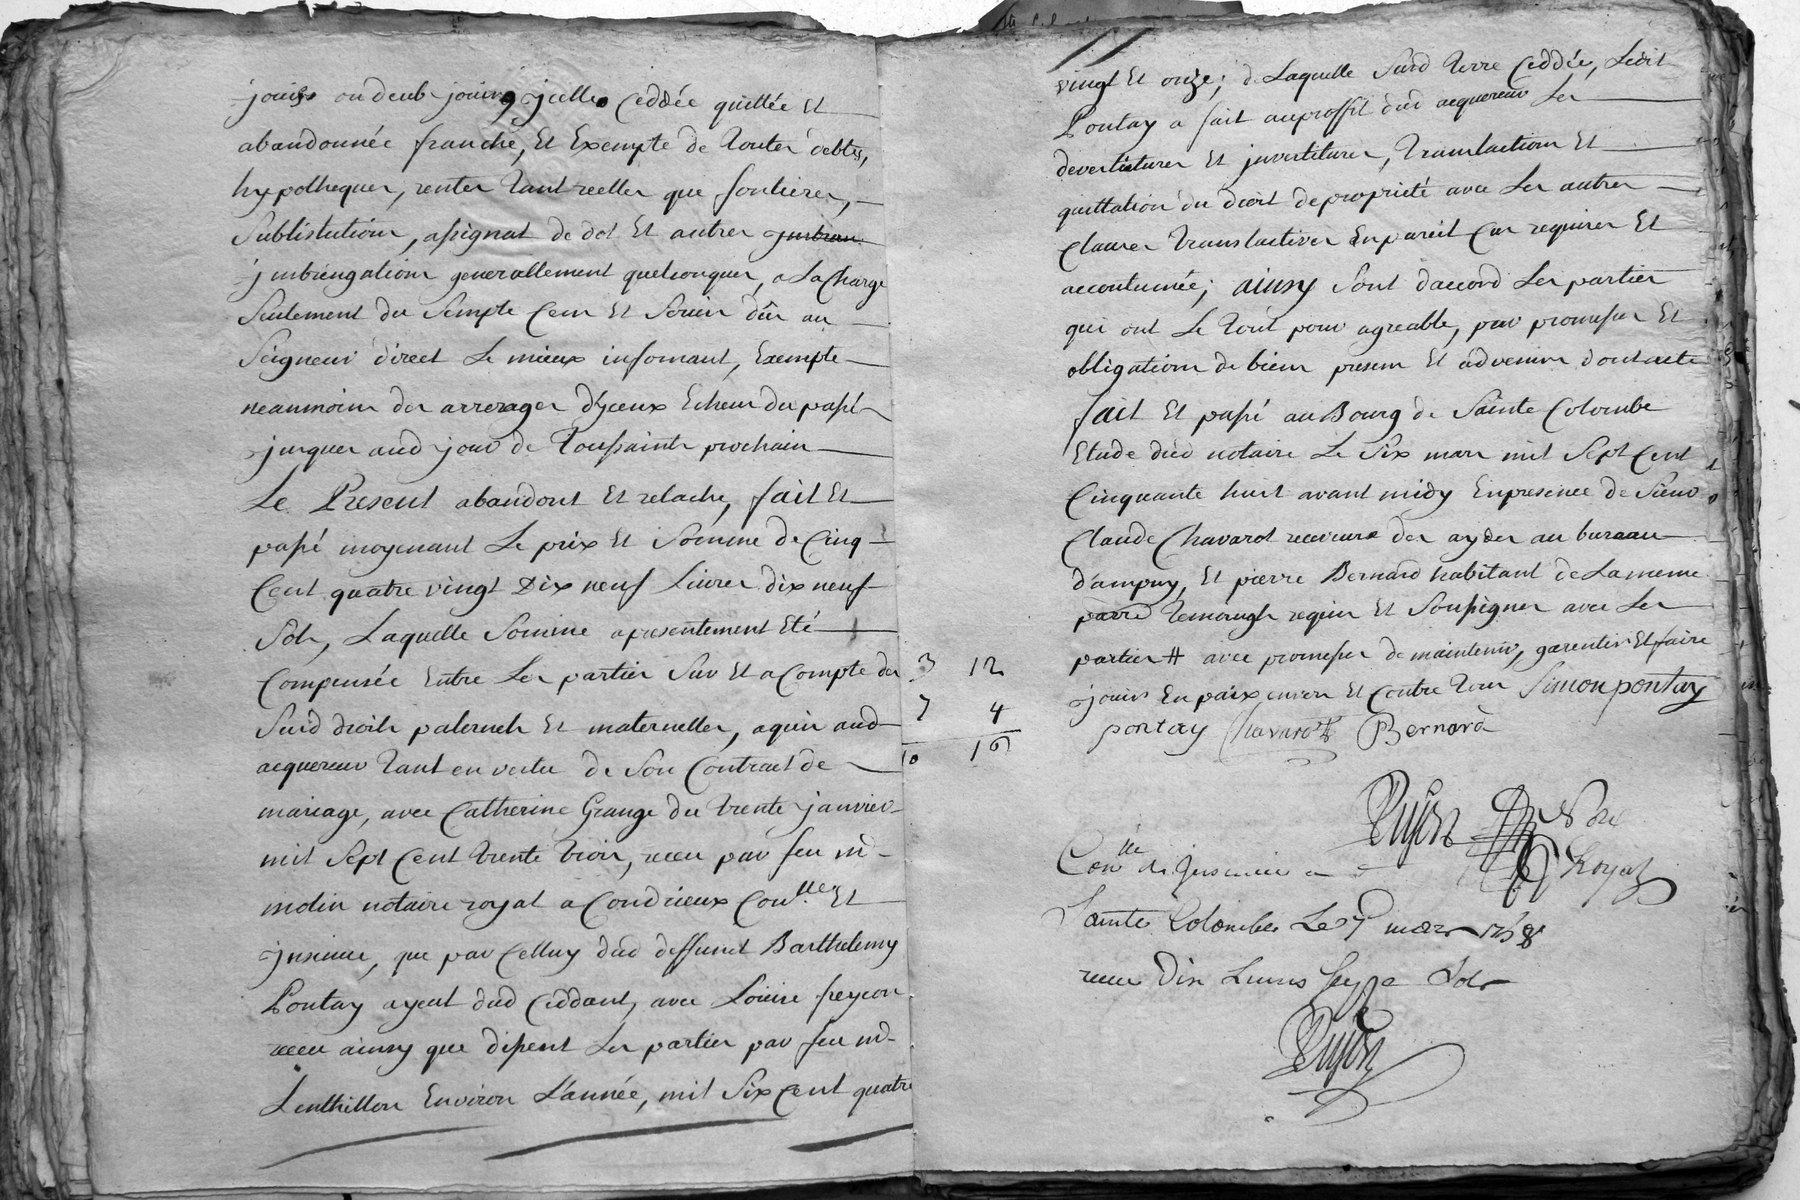 jouir ou deub jouir, jcelle ceddée quittée et
abandonnée franche, et Exempte de toutes debtes,
hypotheques, rentes tant reelles que fontieres,
Substitutions, assignat de dot et autres
jmbrigations generallement quelconques, a La charge
Seulement du Simple Cens et Servis dûs au
Seigneur direct Le mieux informant, Exempte
neanmoins des arrerages d'jceux Echeus du passé
jusques aud jour de Toussaints prochain
Le Present abandont et relaché, fait Et
passé moyenant Le prix et Somme de Cinq
Cent quatre vingt Dix neuf Livres dix neuf
Sols, Laquelle Somme a presentement Eté
Compensée Entre Les parties Sur Et a Compte des
Susd droits paternels et maternelles, aquis aud
acquereur tant en vertu de Son Contract de
mariage, avec Catherine Grange du trente janvier
mil Sept Cent trente trois, receu par feu me
molin notaire royal a Condrieux Conlle Et
jnsinué, que par Celluy dud deffunct Barthelemy
Pontay ayeul dud Ceddant, avec Loüise freycon
receu ainsy que disent Les parties par feu me
Lenthillon Environ L'année, mil Six Cent quatre
3 12
7 4
10 16
vingt Et onze; de Laquelle Susd terre Ceddée, Ledit
Pontay a fait au proffit dud acquereur Les
devestitures Et jnvestitures, translactions Et
quittation du droit de propriété avec Les autres
clauses translactives En pareil Cas requises Et
accoutumée; ainsy Sont d'accord Les parties
qui ont Le tout pour agreable, par promesses Et
obligations de biens presens Et advenirs dont acte
fait Et passé au Bourg de Sainte Colombe
Etude dud notaire Le Six mars mil Sept Cent
Cinquante huit avant midy En presence de Sieur
Claude Chavarot receveur des aydes au bureau
d'ampuy, Et pierre Bernard habitant de La meme
parre temoingts requis Et Soussignes avec Les
parties # avec promesses de maintenir, garentir Et faire
jouir En paix envers Et Contre tous Simon pontay
pontay Chavarot Bernard
Pujon Nore
Royal
Conlle & jnsinué a
Sainte Colombe Le 7 mars 1758
receu Dix Livres seize Sols
Pujon